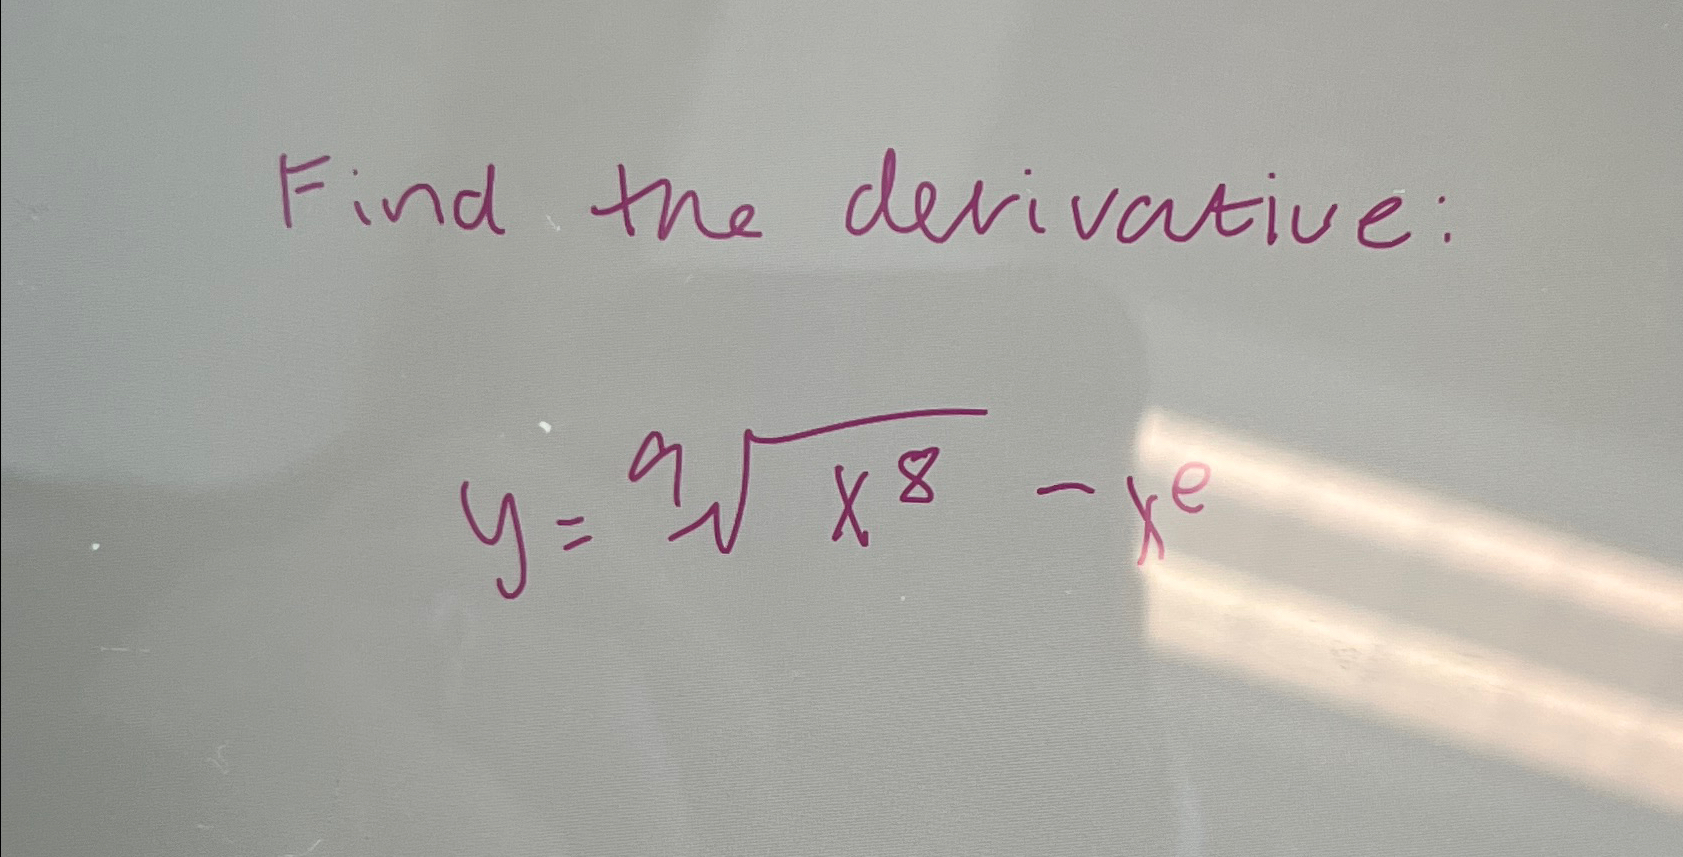 Find the derivative:
y = ⁹√(x⁸) - xᵉ